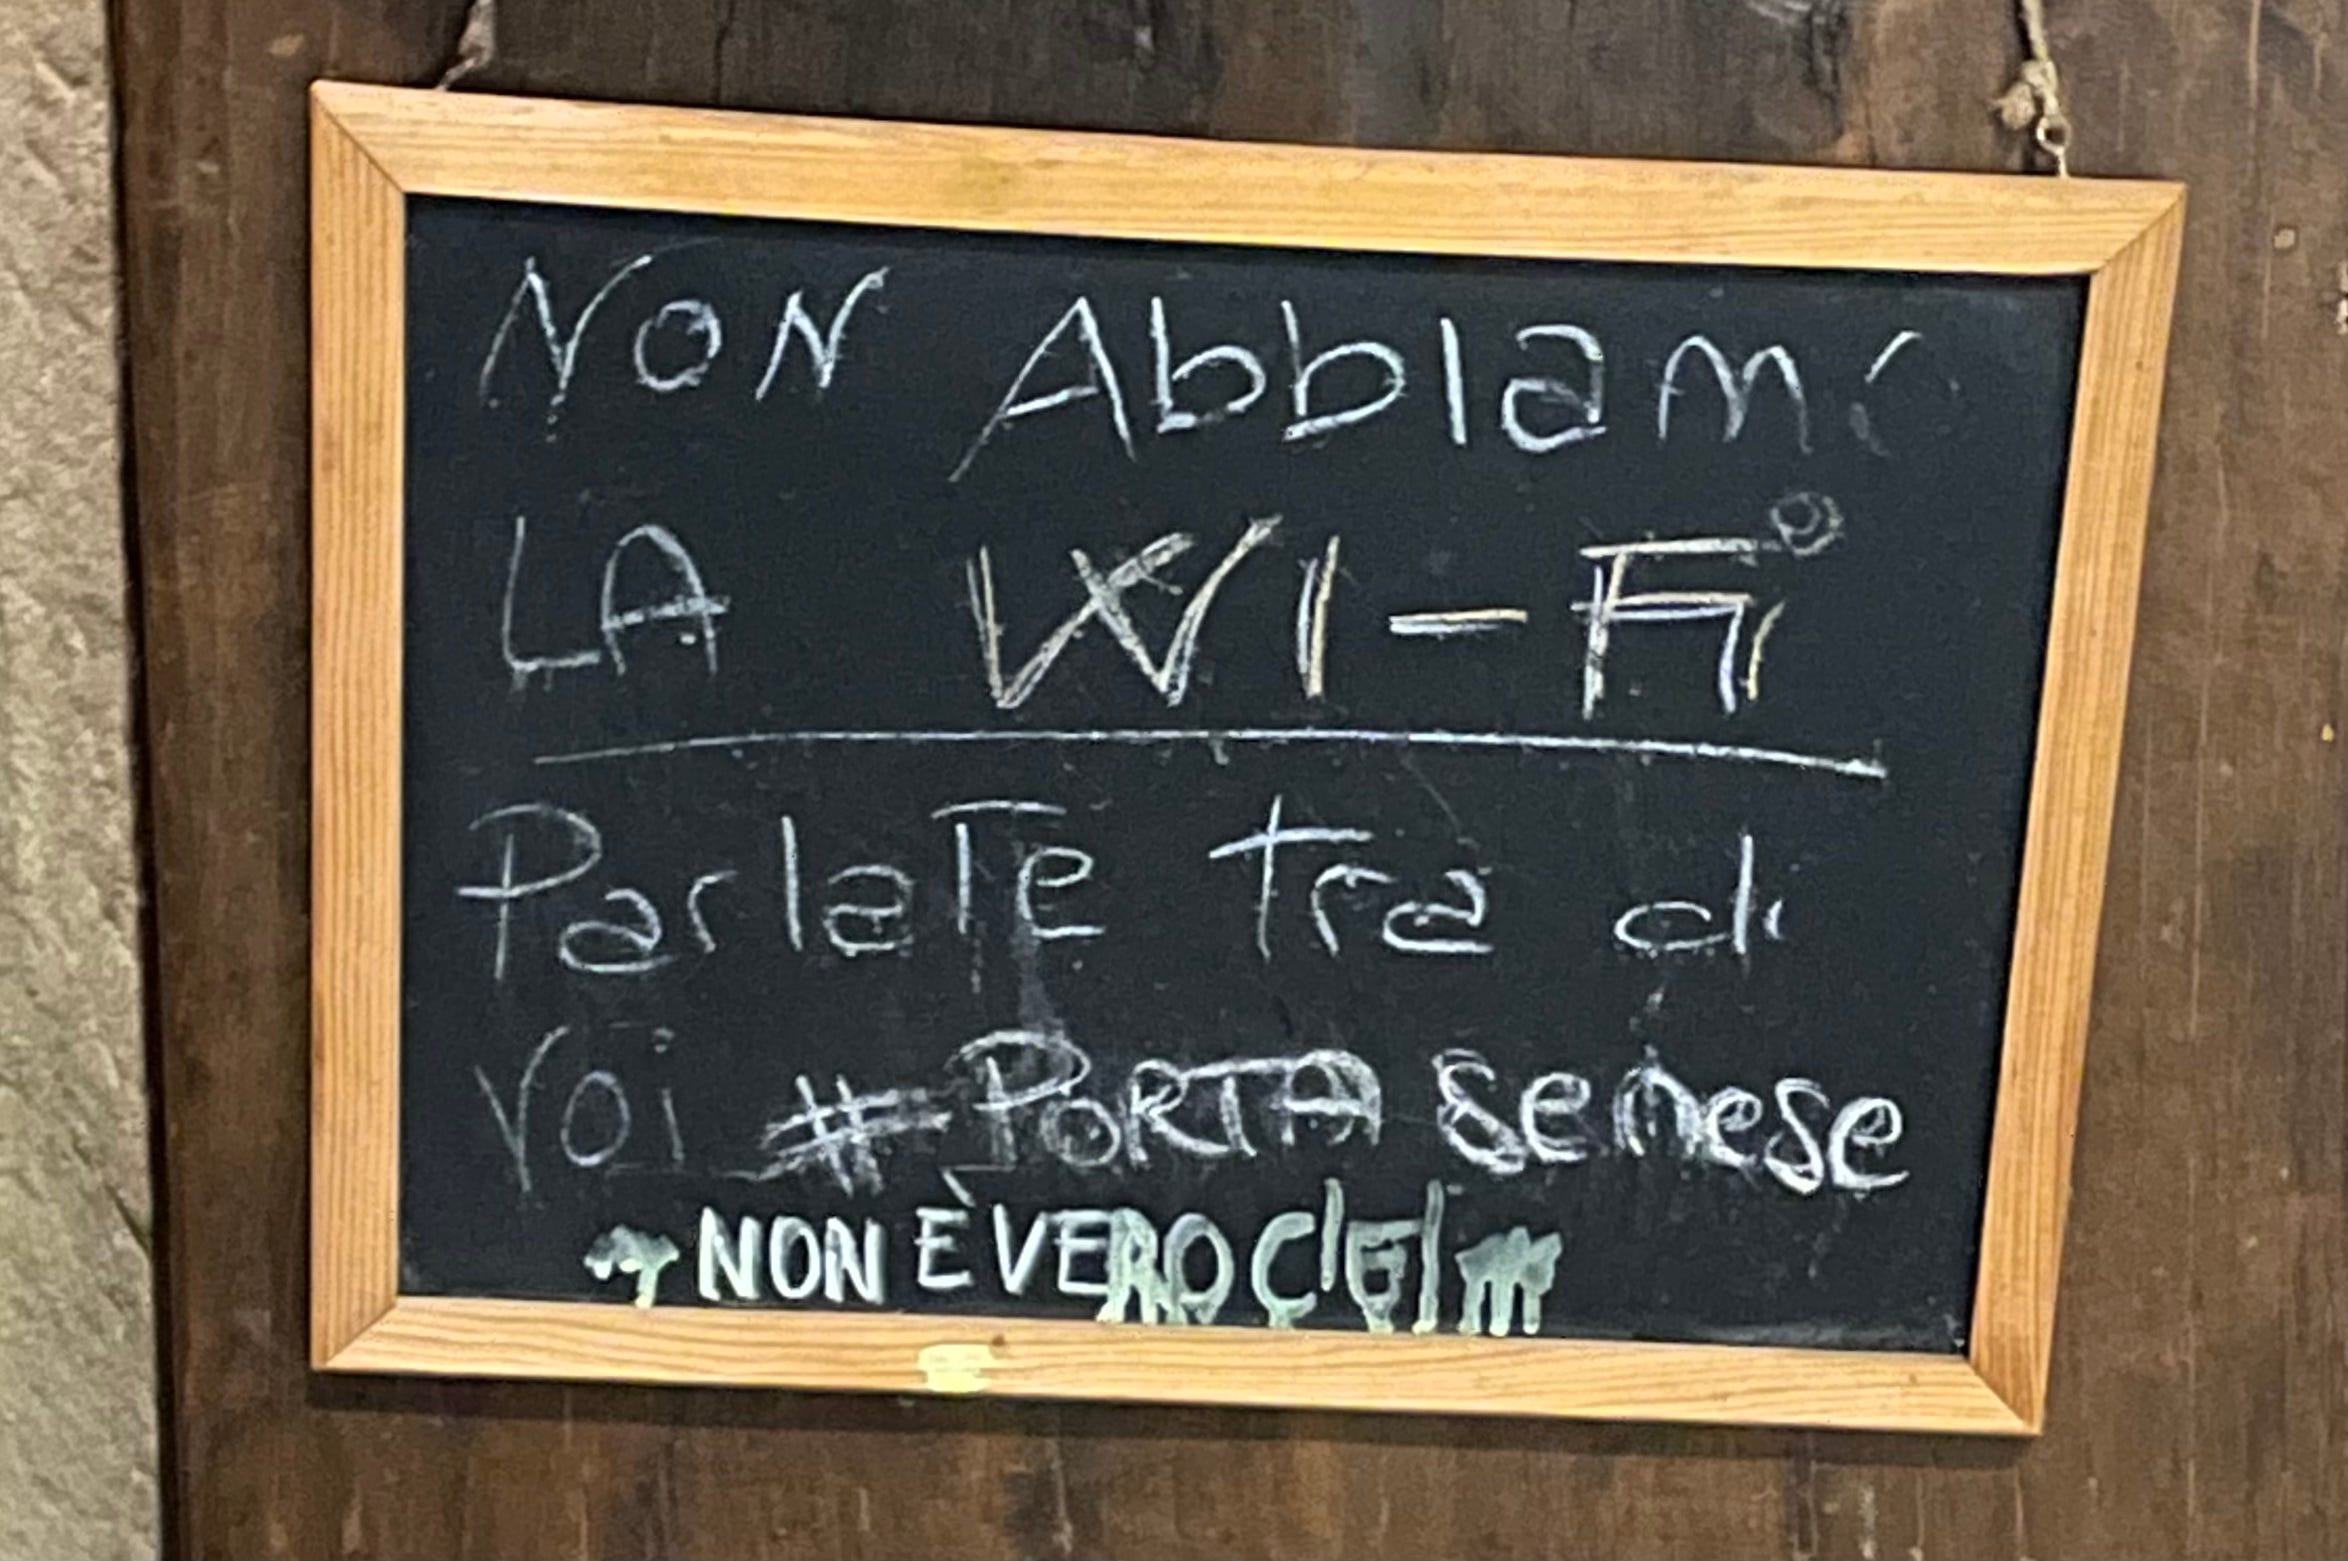 NON AbbIamo
LA WI-Fi
ParlaTe tra di
Voi #PORTA senese
NON È VERO C'È!!!